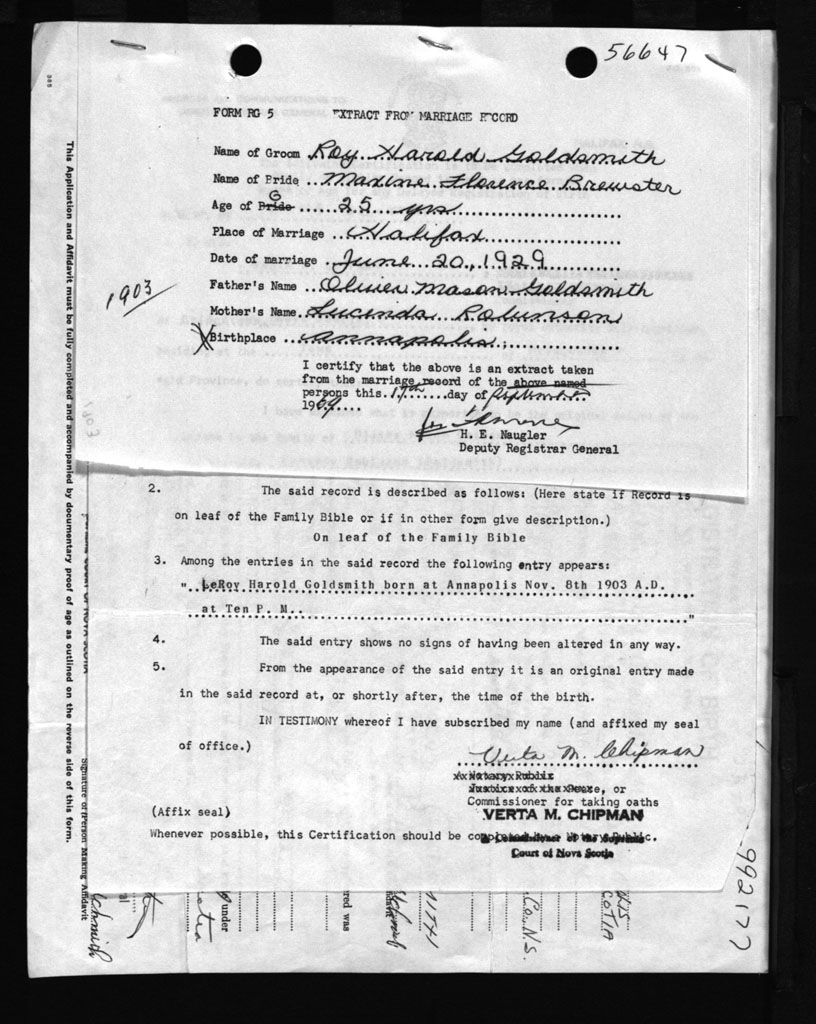 56647
FORM RG 5 EXTRACT FROM MARRIAGE RECORD
Name of Groom Roy Harold Goldsmith
Name of Bride Maxine Florence Brewster
G
Age of Bride 25 yrs
Place of Marriage Halifax
Date of marriage June 20, 1929
Father's Name Oliver Mason Goldsmith
1903
Mother's Name Lucinda Robinson
X Birthplace Annapolis
I certify that the above is an extract taken
from the marriage record of the above named
persons this 17th day of September
1969
H. E. Naugler
Deputy Registrar General
2. The said record is described as follows: (Here state if Record is
on leaf of the Family Bible or if in other form give description.)
On leaf of the Family Bible
3. Among the entries in the said record the following entry appears:
" LeRoy Harold Goldsmith born at Annapolis Nov. 8th 1903 A.D.
at Ten P. M.. "
4. The said entry shows no signs of having been altered in any way.
5. From the appearance of the said entry it is an original entry made
in the said record at, or shortly after, the time of the birth.
IN TESTIMONY whereof I have subscribed my name (and affixed my seal
of office.)
Verta M. Chipman
A Notary Public
Justice of the Peace, or
Commissioner for taking oaths
(Affix seal)
VERTA M. CHIPMAN
Whenever possible, this Certification should be completed by a Notary Public.
A Commissioner of the Supreme
Court of Nova Scotia
This Application and Affidavit must be fully completed and accompanied by documentary proof of age as outlined on the reverse side of this form.
Signature of Person Making Affidavit
under
red was
Co. N.S.
COTIA
992177